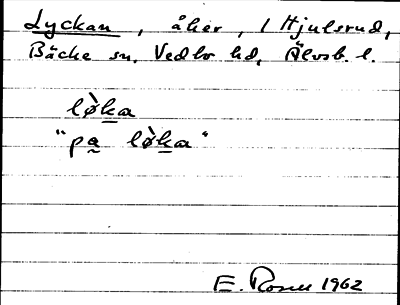 Lyckan, åker, 1 Hjulsrud,
Bäcke sn. Vedbo hd, Älvsb. l.
lø̀ka
"pa lø̀ka"
E. Rosell 1962